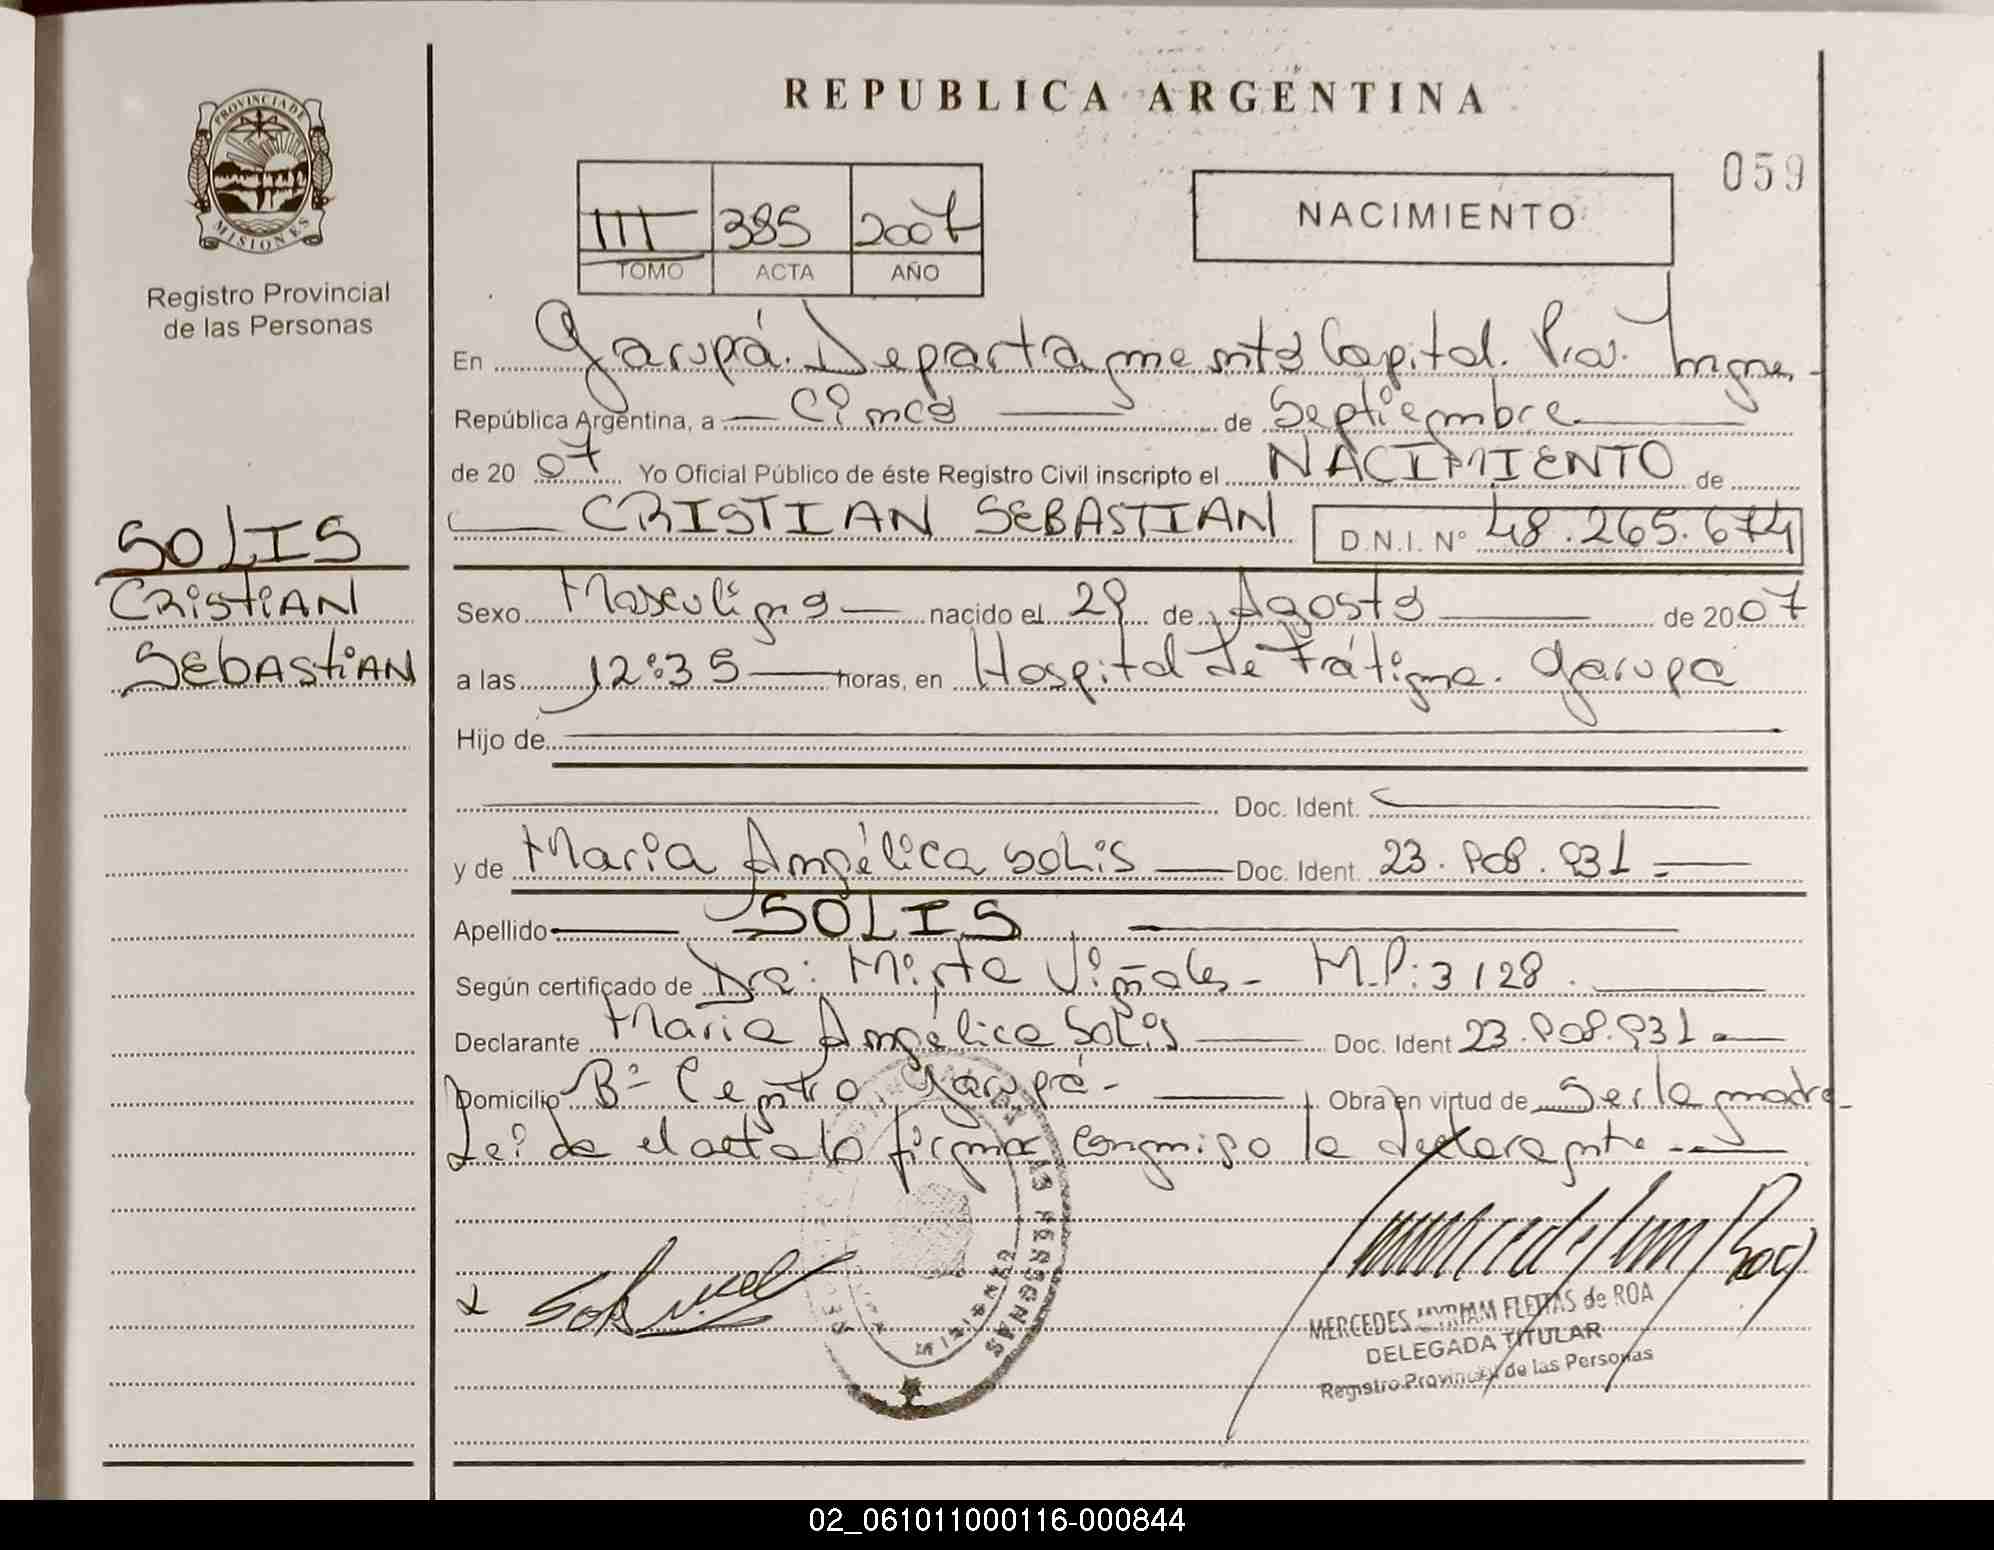 PROVINCIA DE
MISIONES
Registro Provincial
de las Personas
SOLIS
CRistiAN
SEbAStiAN
REPUBLICA ARGENTINA
059
III 385 2007
TOMO ACTA AÑO
NACIMIENTO
En Garupá. Departamento Capital.
República Argentina, a Cinco de Septiembre
de 20 07 Yo Oficial Público de éste Registro Civil inscripto el NACIMIENTO de
CRISTIAN SEBASTIAN D.N.I. Nº 48.265.674
Sexo Masculino nacido el 29 de Agosto de 2007
a las 12:35 horas, en Hospital de Fátima. Garupá
Hijo de
Doc. Ident.
y de Maria Angélica Solis Doc. Ident. 23.908.931
Apellido SOLIS
Según certificado de Dra: Mirta Viñales - M.P: 3128.
Declarante Maria Angélica Solis Doc. Ident 23.908.931
Domicilio Bº Centro Garupá - Obra en virtud de ser la madre
Leida el acta la firma conmigo la declarante
Solis
MERCEDES MYRIAM FLEITAS de ROA
DELEGADA TITULAR
Registro Provincial de las Personas
LAS PERSONAS
MISIONES
02_061011000116-000844